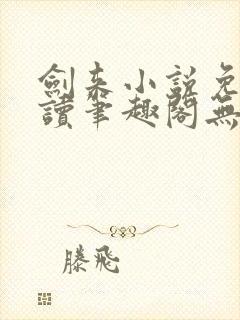 劍来小說免
讀筆趣閣無
滕飛